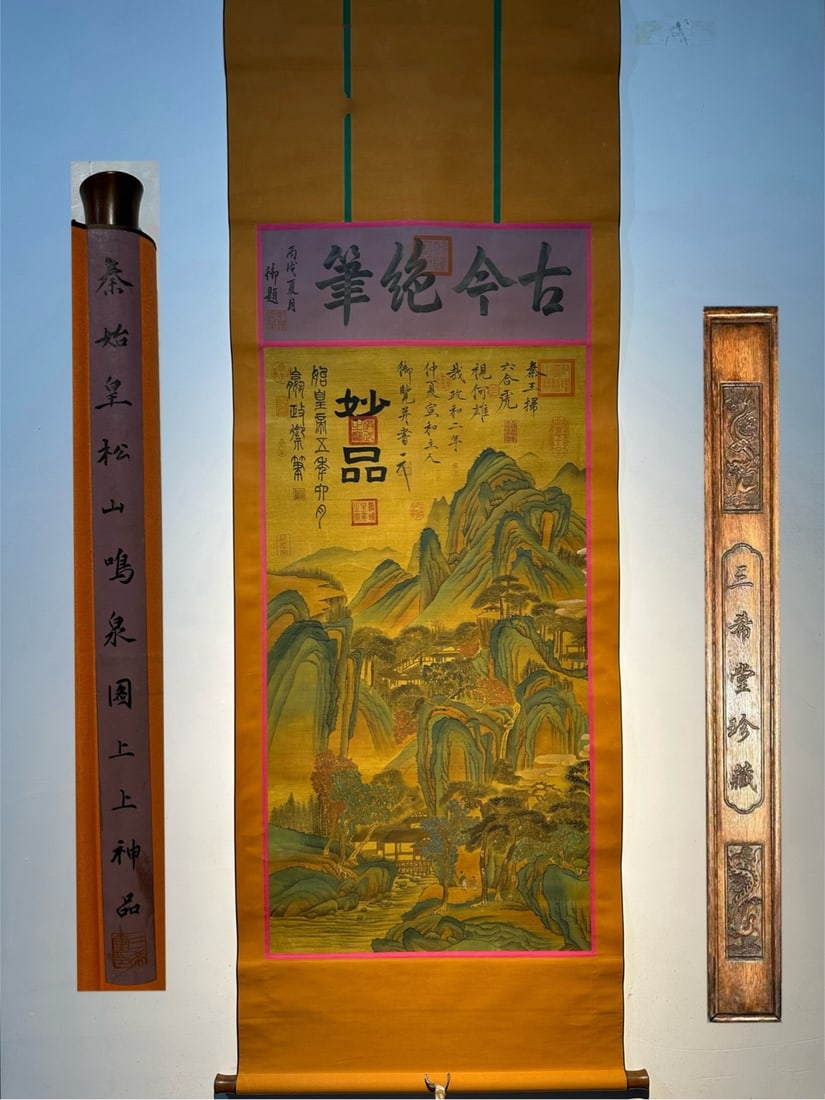 秦始皇松山鳴泉圖上上神品
古今絕筆
丙戌夏月
御題
秦王掃
六合虎
視何雄
哉政和二年
仲夏宣和主人
御覽并書
妙品
始皇帝五年卯月
嬴政御筆
三希堂珍藏